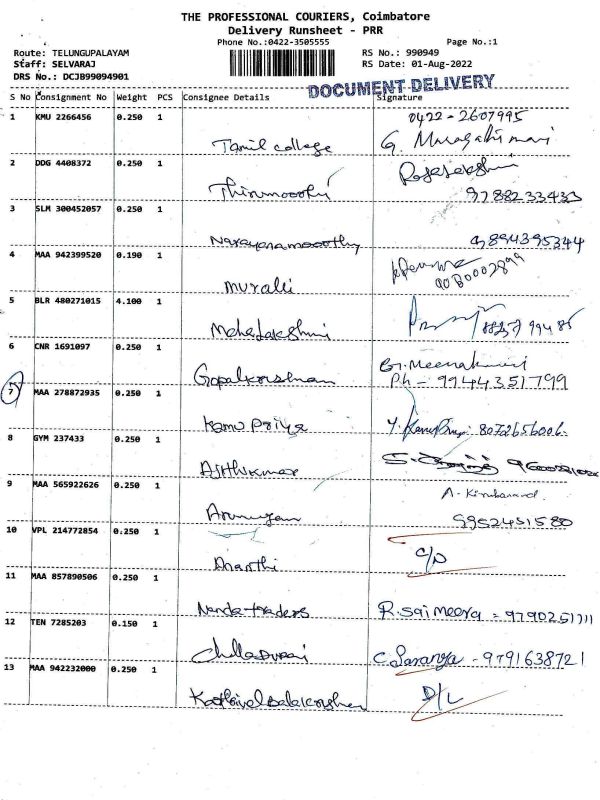 THE PROFESSIONAL COURIERS, Coimbatore
Delivery Runsheet - PRR
Phone No.:0422-3505555 Page No.:1
Route: TELUNGUPALAYAM RS No.: 990949
Staff: SELVARAJ RS Date: 01-Aug-2022
DRS No.: DCJB99094901
DOCUMENT DELIVERY
S No Consignment No Weight PCS Consignee Details Signature
1 KMU 2266456 0.250 1 0422-2607995
Tamil college G.
2 DDG 4408372 0.250 1
9788233433
3 SLM 300452057 0.250 1
Narayanamooorthy 9894395344
4 MAA 942399520 0.190 1
Murali
5 BLR 480271015 4.100 1
Mahalakshmi
6 CNR 1691097 0.250 1 G. Meenakumari
Gopalkrishnan Ph - 9944351799
7 MAA 278872935 0.250 1
Kamu Priya 8072656006
8 GYM 237433 0.250 1
Ajithkumar
9 MAA 565922626 0.250 1
Arumugam 9952451580
10 VPL 214772854 0.250 1
Ananthi
11 MAA 857890506 0.250 1
Nanda traders R. Sai Meera - 9790251711
12 TEN 7285203 0.150 1
Chelladurai C. Saranya - 9791638721
13 MAA 942232000 0.250 1
D/L